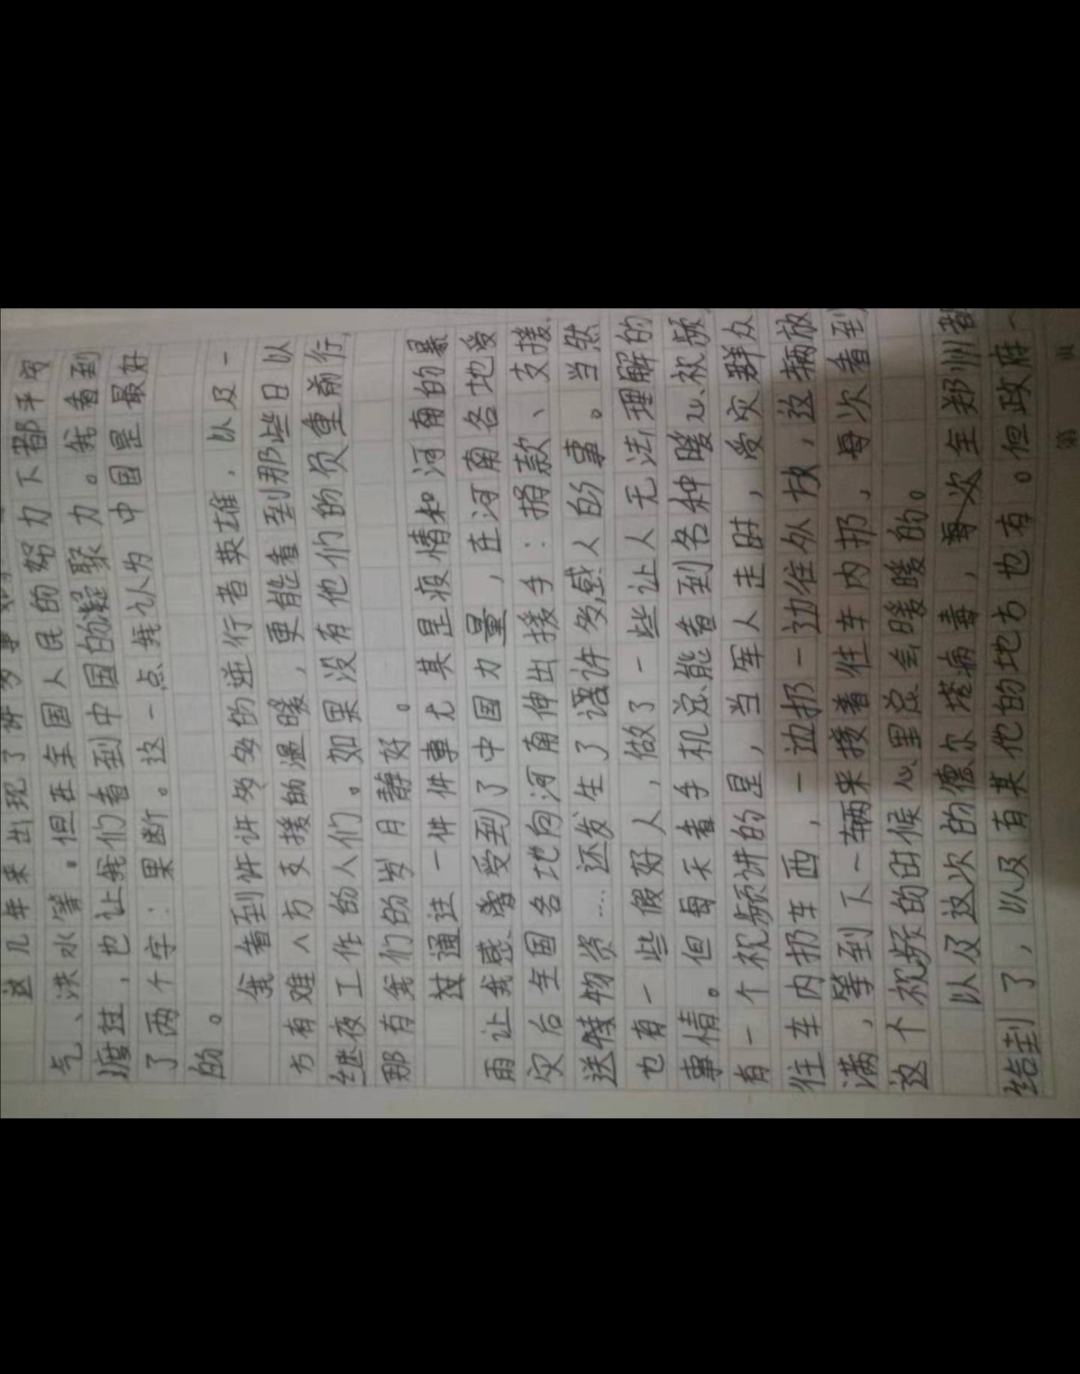 这几年来出现了许多事
气、洪水等。但在全国人民的努力下都平安
渡过，也让我们看到中国的凝聚力。我看到
了两个字：果断。这一点我认为中国是最好
的。
我看到许许多多的逆行者英雄，以及一
方有难八方支援的温暖，更能看到那些日以
继夜工作的人们。如果没有他们的负重前行，
那有我们的岁月静好。
过通过一件件事尤其是疫情和河南的暴
雨让我感受到了中国力量，在河南各地受
灾后全国各地向河南伸出援手：捐款、支援、
送特物资……还发生了许多感人的事。当然
也有一些假好人，做了一些让人无法理解的
事情。但每天看手机总能看到各种暖心视频，
有一个视频讲的是，当军人走时，受灾群众
往车内扔东西，一边扔一边往外放，这辆放
满，等到下一辆来接着往车内扔，每次看到
这个视频的时候心里总会暖暖的。
以及这次的德尔塔病毒，每次全郑州都
给到了，以及有其他的地方也有。但政府一
第 页